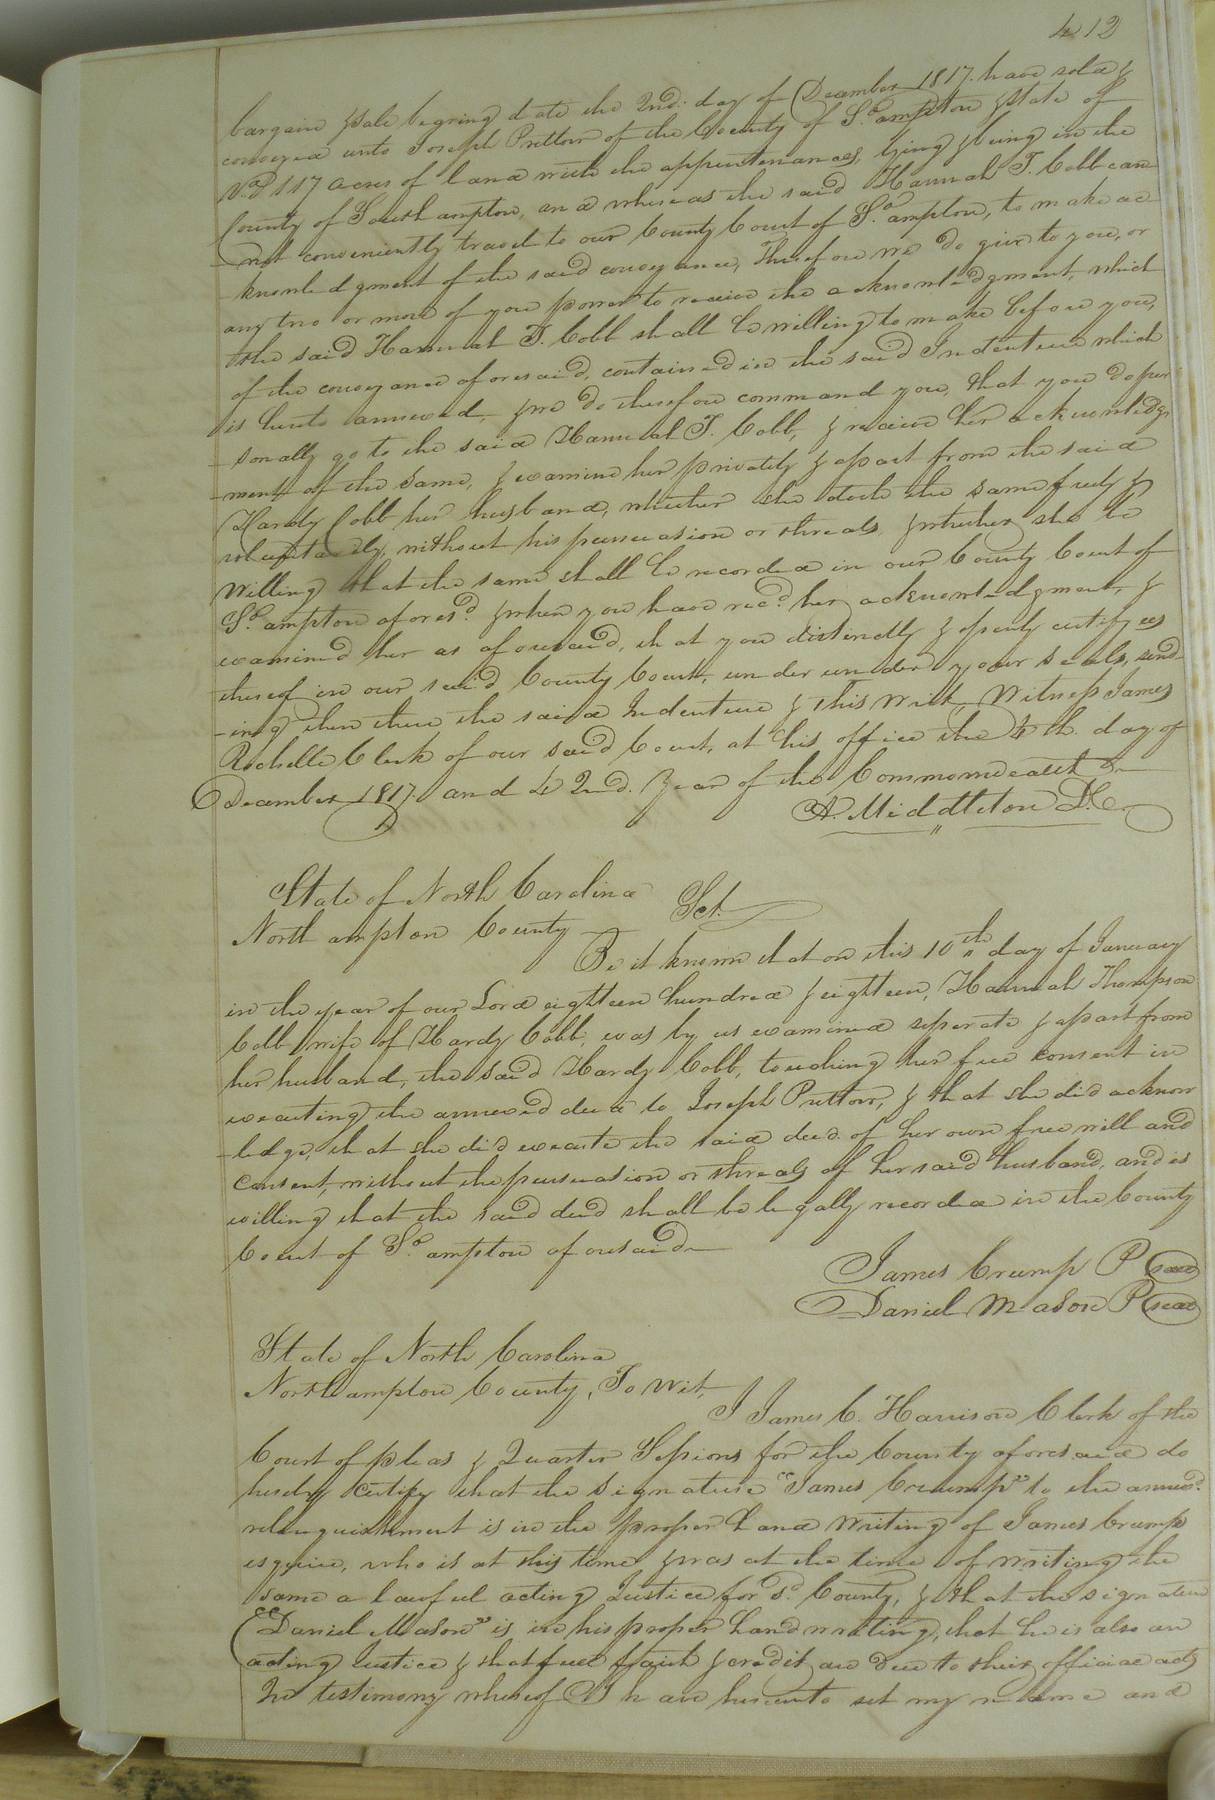 412
bargain & sale bearing date the 2nd. day of December 1817. have sold &
conveyed unto Joseph Prettow of the County of So.ampton & State of
Va 117 acres of land with the appurtenances, lying & being in the
County of Southampton, and whereas the said Hannah T. Cobb can
not conveniently travel to our County Court of So.ampton, to make ac
knowledgment of the said conveyance, Therefore we do give to you, or
any two or more of you power to receive the acknowledgment, which
the said Hannah T. Cobb shall be willing to make before you,
of the conveyance aforesaid, contained in the said Indenture which
is hereto annexed, & we do therefore command you, that you do per
sonally go to the said Hannah T. Cobb, & receive her acknowledg
ment of the same, & examine her privately & apart from the said
Hardy Cobb her husband, whether she doth the same freely &
voluntarily, without his persuasion or threats & whether she be
willing that the same shall be recorded in our County Court of
So.ampton afores.d & when you have rec.d her acknowledgment, &
examined her as aforesaid, that you distinctly & openly certify us
thereof in our said County Court, under under your seals, send-
-ing then there the said Indenture & this writ, Witness James
Rochelle Clerk of our said Court, at his office the 4th. day of
December 1817. and 42nd. Year of the Commonwealth
A. Middleton D.C.
State of North Carolina
Northampton County Sct.
Be it known that on this 10th day of January
in the year of our Lord eighteen hundred & eighteen, Hannah Thompson
Cobb, wife of Hardy Cobb, was by us examined seperate & apart from
her husband, the said Hardy Cobb, touching her free consent in
executing the annexed deed to Joseph Prettow, & that she did acknow
-ledge, that she did execute the said deed of her own free will and
consent, without the persuasion or threats of her said husband, and is
willing that the said deed shall be legally recorded in the County
Court of So.ampton aforesaid
James Crump P seal
Daniel Mason P seal
State of North Carolina
Northampton County, To Wit,
I James C. Harrison Clerk of the
Court of pleas & Quarter Sessions for the County aforesaid do
hereby certify that the signature "James Crump" to the annexd.
relinquishment is in the proper hand writing of James Crump
esquire, who is at this time & was at the time of writing the
same a lawful acting Justice for sd. County, & that the signature
"Daniel Mason" is in his proper handwriting, that he is also an
acting Justice & that full faith & credit are due to their official acts
In testimony whereof I have hereunto set my name and